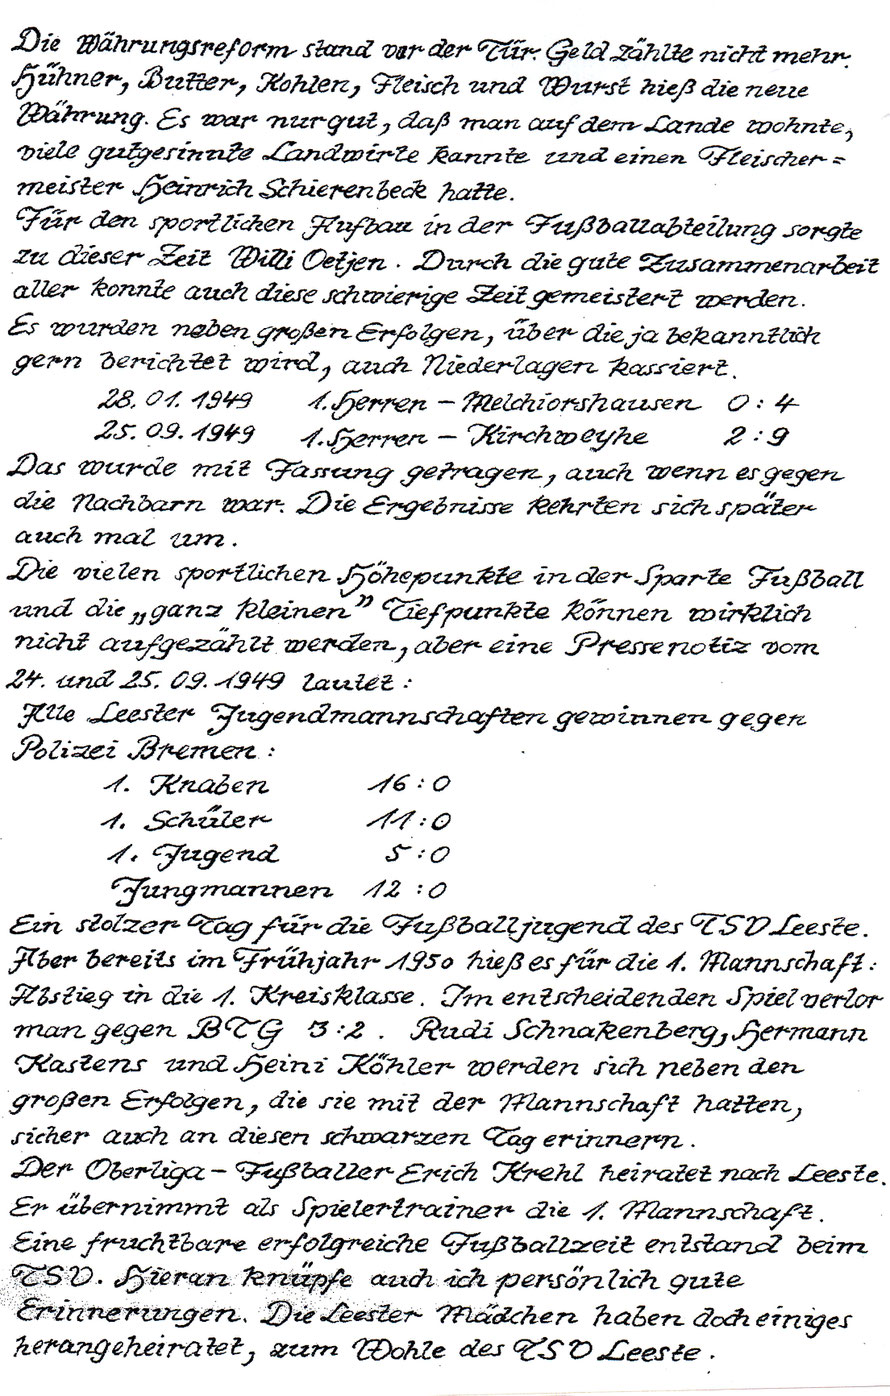 Die Währungsreform stand vor der Tür. Geld zählte nicht mehr.
Hühner, Butter, Kohlen, Fleisch und Wurst hieß die neue
Währung. Es war nur gut, daß man auf dem Lande wohnte,
viele gutgesinnte Landwirte kannte und einen Fleischer=
meister Heinrich Schierenbeck hatte.
Für den sportlichen Aufbau in der Fußballabteilung sorgte
zu dieser Zeit Willi Oetjen. Durch die gute Zusammenarbeit
aller konnte auch diese schwierige Zeit gemeistert werden.
Es wurden neben großen Erfolgen, über die ja bekanntlich
gern berichtet wird, auch Niederlagen kassiert.
28.01.1949 1.Herren – Melchiorshausen 0:4
25.09.1949 1.Herren – Kirchweyhe 2:9
Das wurde mit Fassung getragen, auch wenn es gegen
die Nachbarn war. Die Ergebnisse kehrten sich später
auch mal um.
Die vielen sportlichen Höhepunkte in der Sparte Fußball
und die „ganz kleinen” Tiefpunkte können wirklich
nicht aufgezählt werden, aber eine Pressenotiz vom
24. und 25.09.1949 lautet:
Alle Leester Jugendmannschaften gewinnen gegen
Polizei Bremen:
1. Knaben 16:0
1. Schüler 11:0
1. Jugend 5:0
Jungmannen 12:0
Ein stolzer Tag für die Fußballjugend des TSV Leeste.
Aber bereits im Frühjahr 1950 hieß es für die 1. Mannschaft:
Abstieg in die 1. Kreisklasse. Im entscheidenden Spiel verlor
man gegen BTG 3:2. Rudi Schnakenberg, Hermann
Kastens und Heini Köhler werden sich neben den
großen Erfolgen, die sie mit der Mannschaft hatten,
sicher auch an diesen schwarzen Tag erinnern.
Der Oberliga – Fußballer Erich Krehl heiratet nach Leeste.
Er übernimmt als Spielertrainer die 1. Mannschaft.
Eine fruchtbare erfolgreiche Fußballzeit entstand beim
TSV. Hieran knüpfe auch ich persönlich gute
Erinnerungen. Die Leester Mädchen haben doch einiges
herangeheiratet, zum Wohle des TSV Leeste.